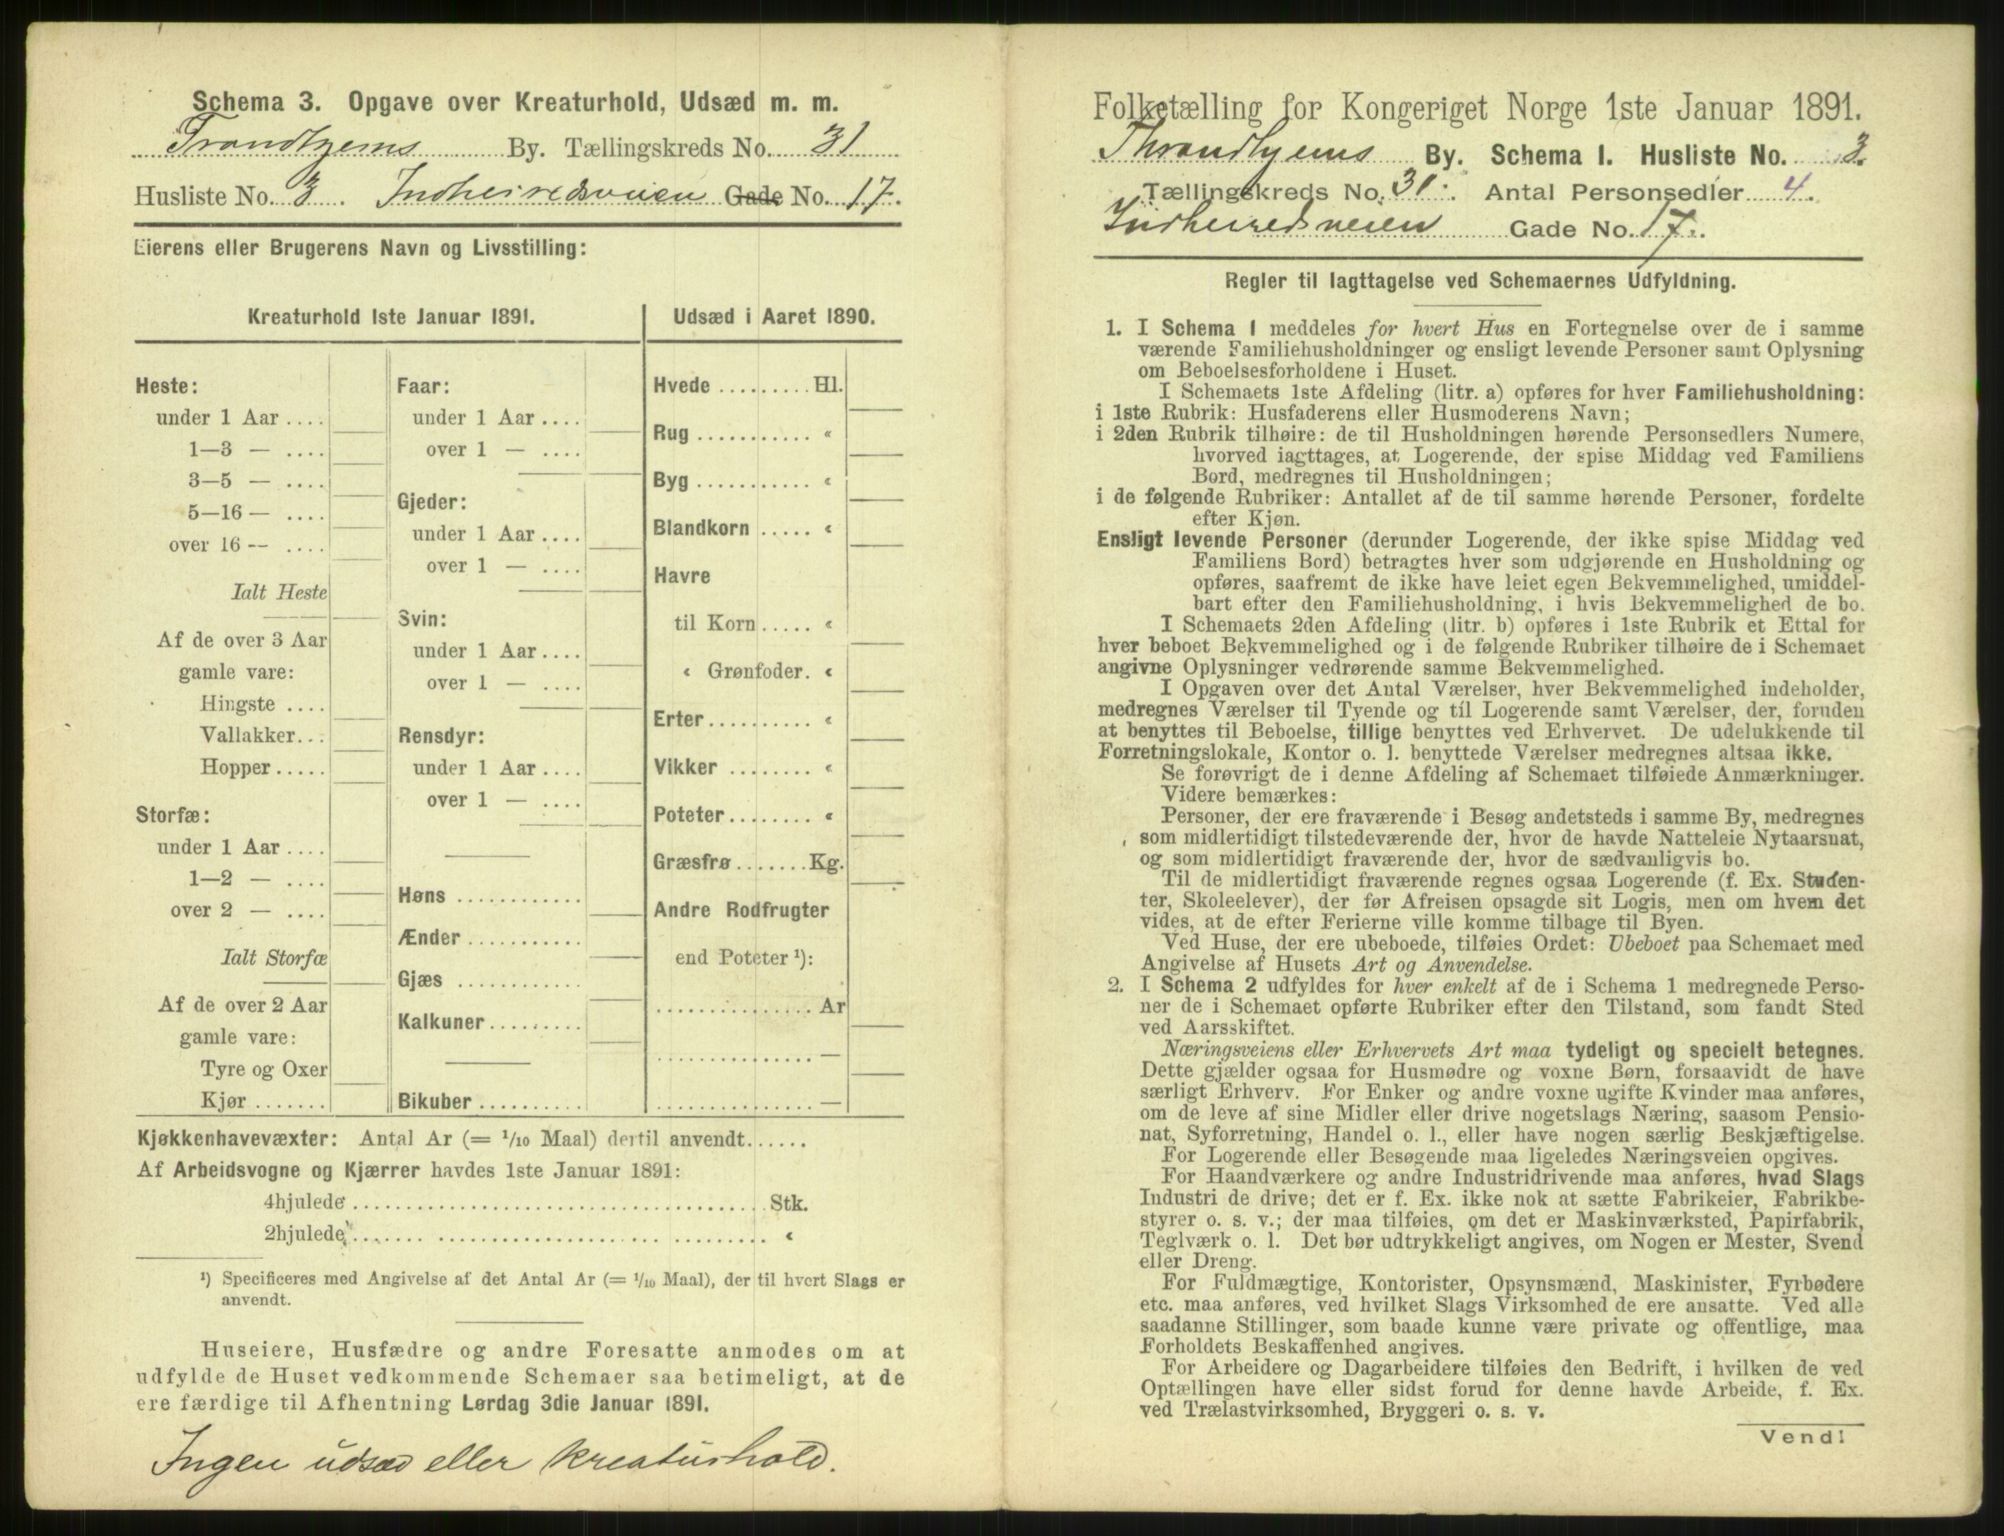 Schema 3. Opgave over Kreaturhold, Udsæd m. m.
Trondhjems By. Tællingskreds No. 31
Husliste No. 3. Indherredsveien Gade No. 17.
Eierens eller Brugerens Navn og Livsstilling:
Kreaturhold 1ste Januar 1891.
Heste:
under 1 Aar ....
1—3 — ....
3—5 — ....
5—16 — ....
over 16 — ....
Ialt Heste
Af de over 3 Aar
gamle vare:
Hingste ....
Vallakker...
Hopper.....
Storfæ:
under 1 Aar ....
1—2 — ....
over 2 — ....
Ialt Storfæ
Af de over 2 Aar
gamle vare:
Tyre og Oxer
Kjør.......
Faar:
under 1 Aar....
over 1 — ....
Gjeder:
under 1 Aar....
over 1 — ....
Svin:
under 1 Aar....
over 1 — ....
Rensdyr:
under 1 Aar....
over 1 — ....
Høns ..........
Ænder...........
Gjæs ..........
Kalkuner.........
Bikuber..........
Udsæd i Aaret 1890.
Hvede .........Hl.
Rug ........... «
Byg ........... «
Blandkorn ..... «
Havre
til Korn..... «
« Grønfoder. «
Erter.......... «
Vikker ........ «
Poteter........ «
Græsfrø.......Kg.
Andre Rodfrugter
end Poteter ¹):
...............Ar
...............—
...............—
Kjøkkenhavevæxter: Antal Ar (= 1/10 Maal) dertil anvendt......
Af Arbeidsvogne og Kjærrer havdes 1ste Januar 1891:
4hjulede.......................................Stk.
2hjulede....................................... «
¹) Specificeres med Angivelse af det Antal Ar (= 1/10 Maal), der til hvert Slags er
anvendt.
Huseiere, Husfædre og andre Foresatte anmodes om at
udfylde de Huset vedkommende Schemaer saa betimeligt, at de
ere færdige til Afhentning Lørdag 3die Januar 1891.
Ingen udsæd eller kreaturhold.
Folketælling for Kongeriget Norge 1ste Januar 1891.
Throndhjems By. Schema 1. Husliste No. 3.
Tællingskreds No. 31. Antal Personsedler 4.
Indherredsveien Gade No. 17.
Regler til Iagttagelse ved Schemaernes Udfyldning.
1. I Schema 1 meddeles for hvert Hus en Fortegnelse over de i samme
værende Familiehusholdninger og ensligt levende Personer samt Oplysning
om Beboelsesforholdene i Huset.
I Schemaets 1ste Afdeling (litr. a) opføres for hver Familiehusholdning:
i 1ste Rubrik: Husfaderens eller Husmoderens Navn;
i 2den Rubrik tilhøire: de til Husholdningen hørende Personsedlers Numere,
hvorved iagttages, at Logerende, der spise Middag ved Familiens
Bord, medregnes til Husholdningen;
i de følgende Rubriker: Antallet af de til samme hørende Personer, fordelte
efter Kjøn.
Ensligt levende Personer (derunder Logerende, der ikke spise Middag ved
Familiens Bord) betragtes hver som udgjørende en Husholdning og
opføres, saafremt de ikke have leiet egen Bekvemmelighed, umiddel-
bart efter den Familiehusholdning, i hvis Bekvemmelighed de bo.
I Schemaets 2den Afdeling (litr. b) opføres i 1ste Rubrik et Ettal for
hver beboet Bekvemmelighed og i de følgende Rubriker tilhøire de i Schemaet
angivne Oplysninger vedrørende samme Bekvemmelighed.
I Opgaven over det Antal Værelser, hver Bekvemmelighed indeholder,
medregnes Værelser til Tyende og til Logerende samt Værelser, der, foruden
at benyttes til Beboelse, tillige benyttes ved Erhvervet. De udelukkende til
Forretningslokale, Kontor o. l. benyttede Værelser medregnes altsaa ikke.
Se forøvrigt de i denne Afdeling af Schemaet tilføiede Anmærkninger.
Videre bemærkes:
Personer, der ere fraværende i Besøg andetsteds i samme By, medregnes
som midlertidigt tilstedeværende der, hvor de havde Natteleie Nytaarsnat,
og som midlertidigt fraværende der, hvor de sædvanligvis bo.
Til de midlertidigt fraværende regnes ogsaa Logerende (f. Ex. Studen-
ter, Skoleelever), der før Afreisen opsagde sit Logis, men om hvem det
vides, at de efter Ferierne ville komme tilbage til Byen.
Ved Huse, der ere ubeboede, tilføies Ordet: Ubeboet paa Schemaet med
Angivelse af Husets Art og Anvendelse.
2. I Schema 2 udfyldes for hver enkelt af de i Schema 1 medregnede Perso-
ner de i Schemaet opførte Rubriker efter den Tilstand, som fandt Sted
ved Aarsskiftet.
Næringsveiens eller Erhvervets Art maa tydeligt og specielt betegnes.
Dette gjælder ogsaa for Husmødre og voxne Børn, forsaavidt de have
særligt Erhverv. For Enker og andre voxne ugifte Kvinder maa anføres,
om de leve af sine Midler eller drive nogetslags Næring, saasom Pensio-
nat, Syforretning, Handel o. l., eller have nogen særlig Beskjæftigelse.
For Logerende eller Besøgende maa ligeledes Næringsveien opgives.
For Haandværkere og andre Industridrivende maa anføres, hvad Slags
Industri de drive; det er f. Ex. ikke nok at sætte Fabrikeier, Fabrikbe-
styrer o. s. v.; der maa tilføies, om det er Maskinværksted, Papirfabrik,
Teglværk o. l. Det bør udtrykkeligt angives, om Nogen er Mester, Svend
eller Dreng.
For Fuldmægtige, Kontorister, Opsynsmænd, Maskinister, Fyrbødere
etc. maa anføres, ved hvilket Slags Virksomhed de ere ansatte. Ved alle
saadanne Stillinger, som baade kunne være private og offentlige, maa
Forholdets Beskaffenhed angives.
For Arbeidere og Dagarbeidere tilføies den Bedrift, i hvilken de ved
Optællingen have eller sidst forud for denne havde Arbeide, f. Ex.
ved Trælastvirksomhed, Bryggeri o. s. v.
Vend!